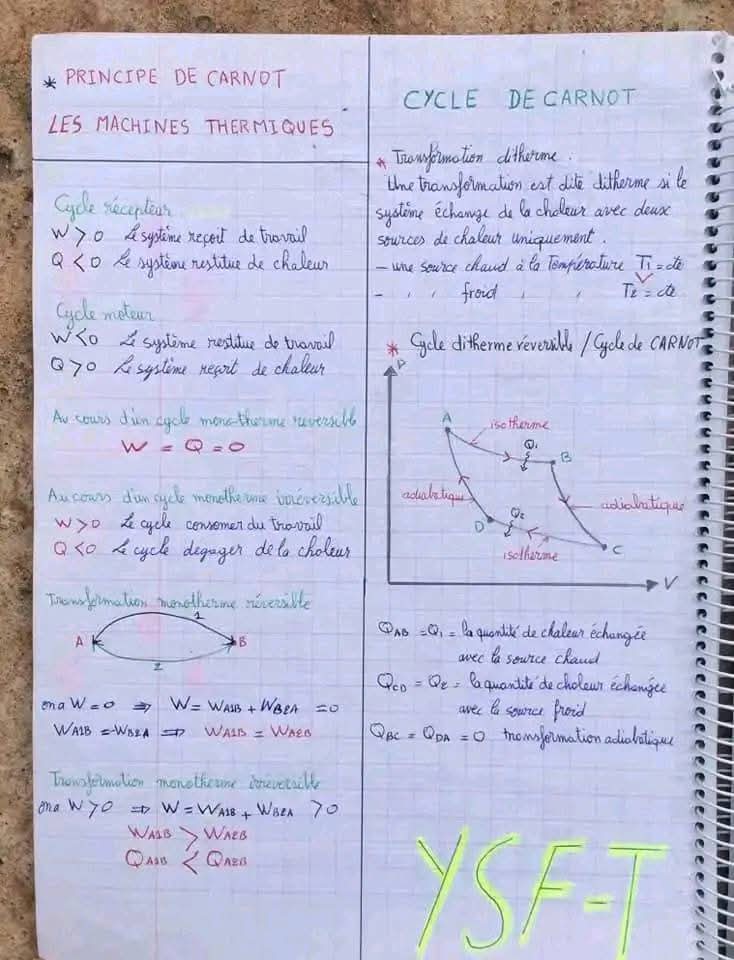 * PRINCIPE DE CARNOT
LES MACHINES THERMIQUES
Cycle récepteur
W > 0 Le système reçort de travail
Q < 0 Le système restitue de chaleur
Cycle moteur
W < 0 Le système restitue de travail
Q > 0 Le système reçort de chaleur
Au cours d'un cycle mono-therme reversible
W = Q = 0
Au cours d'un cycle monotherme irréversible
W > 0 Le cycle consomer du travail
Q < 0 Le cycle degager de la chaleur
Transformation monotherme réversible
1
A B
2
on a W = 0 ⇒ W = WA1B + WB2A = 0
WA1B = -WB2A ⇒ WA1B = WA2B
Transformation monotherme irréversible
on a W > 0 ⇒ W = WA1B + WB2A > 0
WA1B > WA2B
QA1B < QA2B
CYCLE DE CARNOT
* Transformation ditherme.
Une transformation est dite ditherme si le
système échange de la chaleur avec deux
sources de chaleur uniquement.
- une source chaud à la Température T1 = cte
- ' ' froid ' ' T2 = cte
* Cycle ditherme réversible / Cycle de CARNOT
P
A isotherme
Q1
B
adiabatique adiabatique
Q2
D
C
isotherme
V
QAB = Q1 = la quantité de chaleur échangée
avec la source chaud
QCD = Q2 = la quantité de chaleur échangée
avec la source froid
QBC = QDA = 0 transformation adiabatique
YSF-T